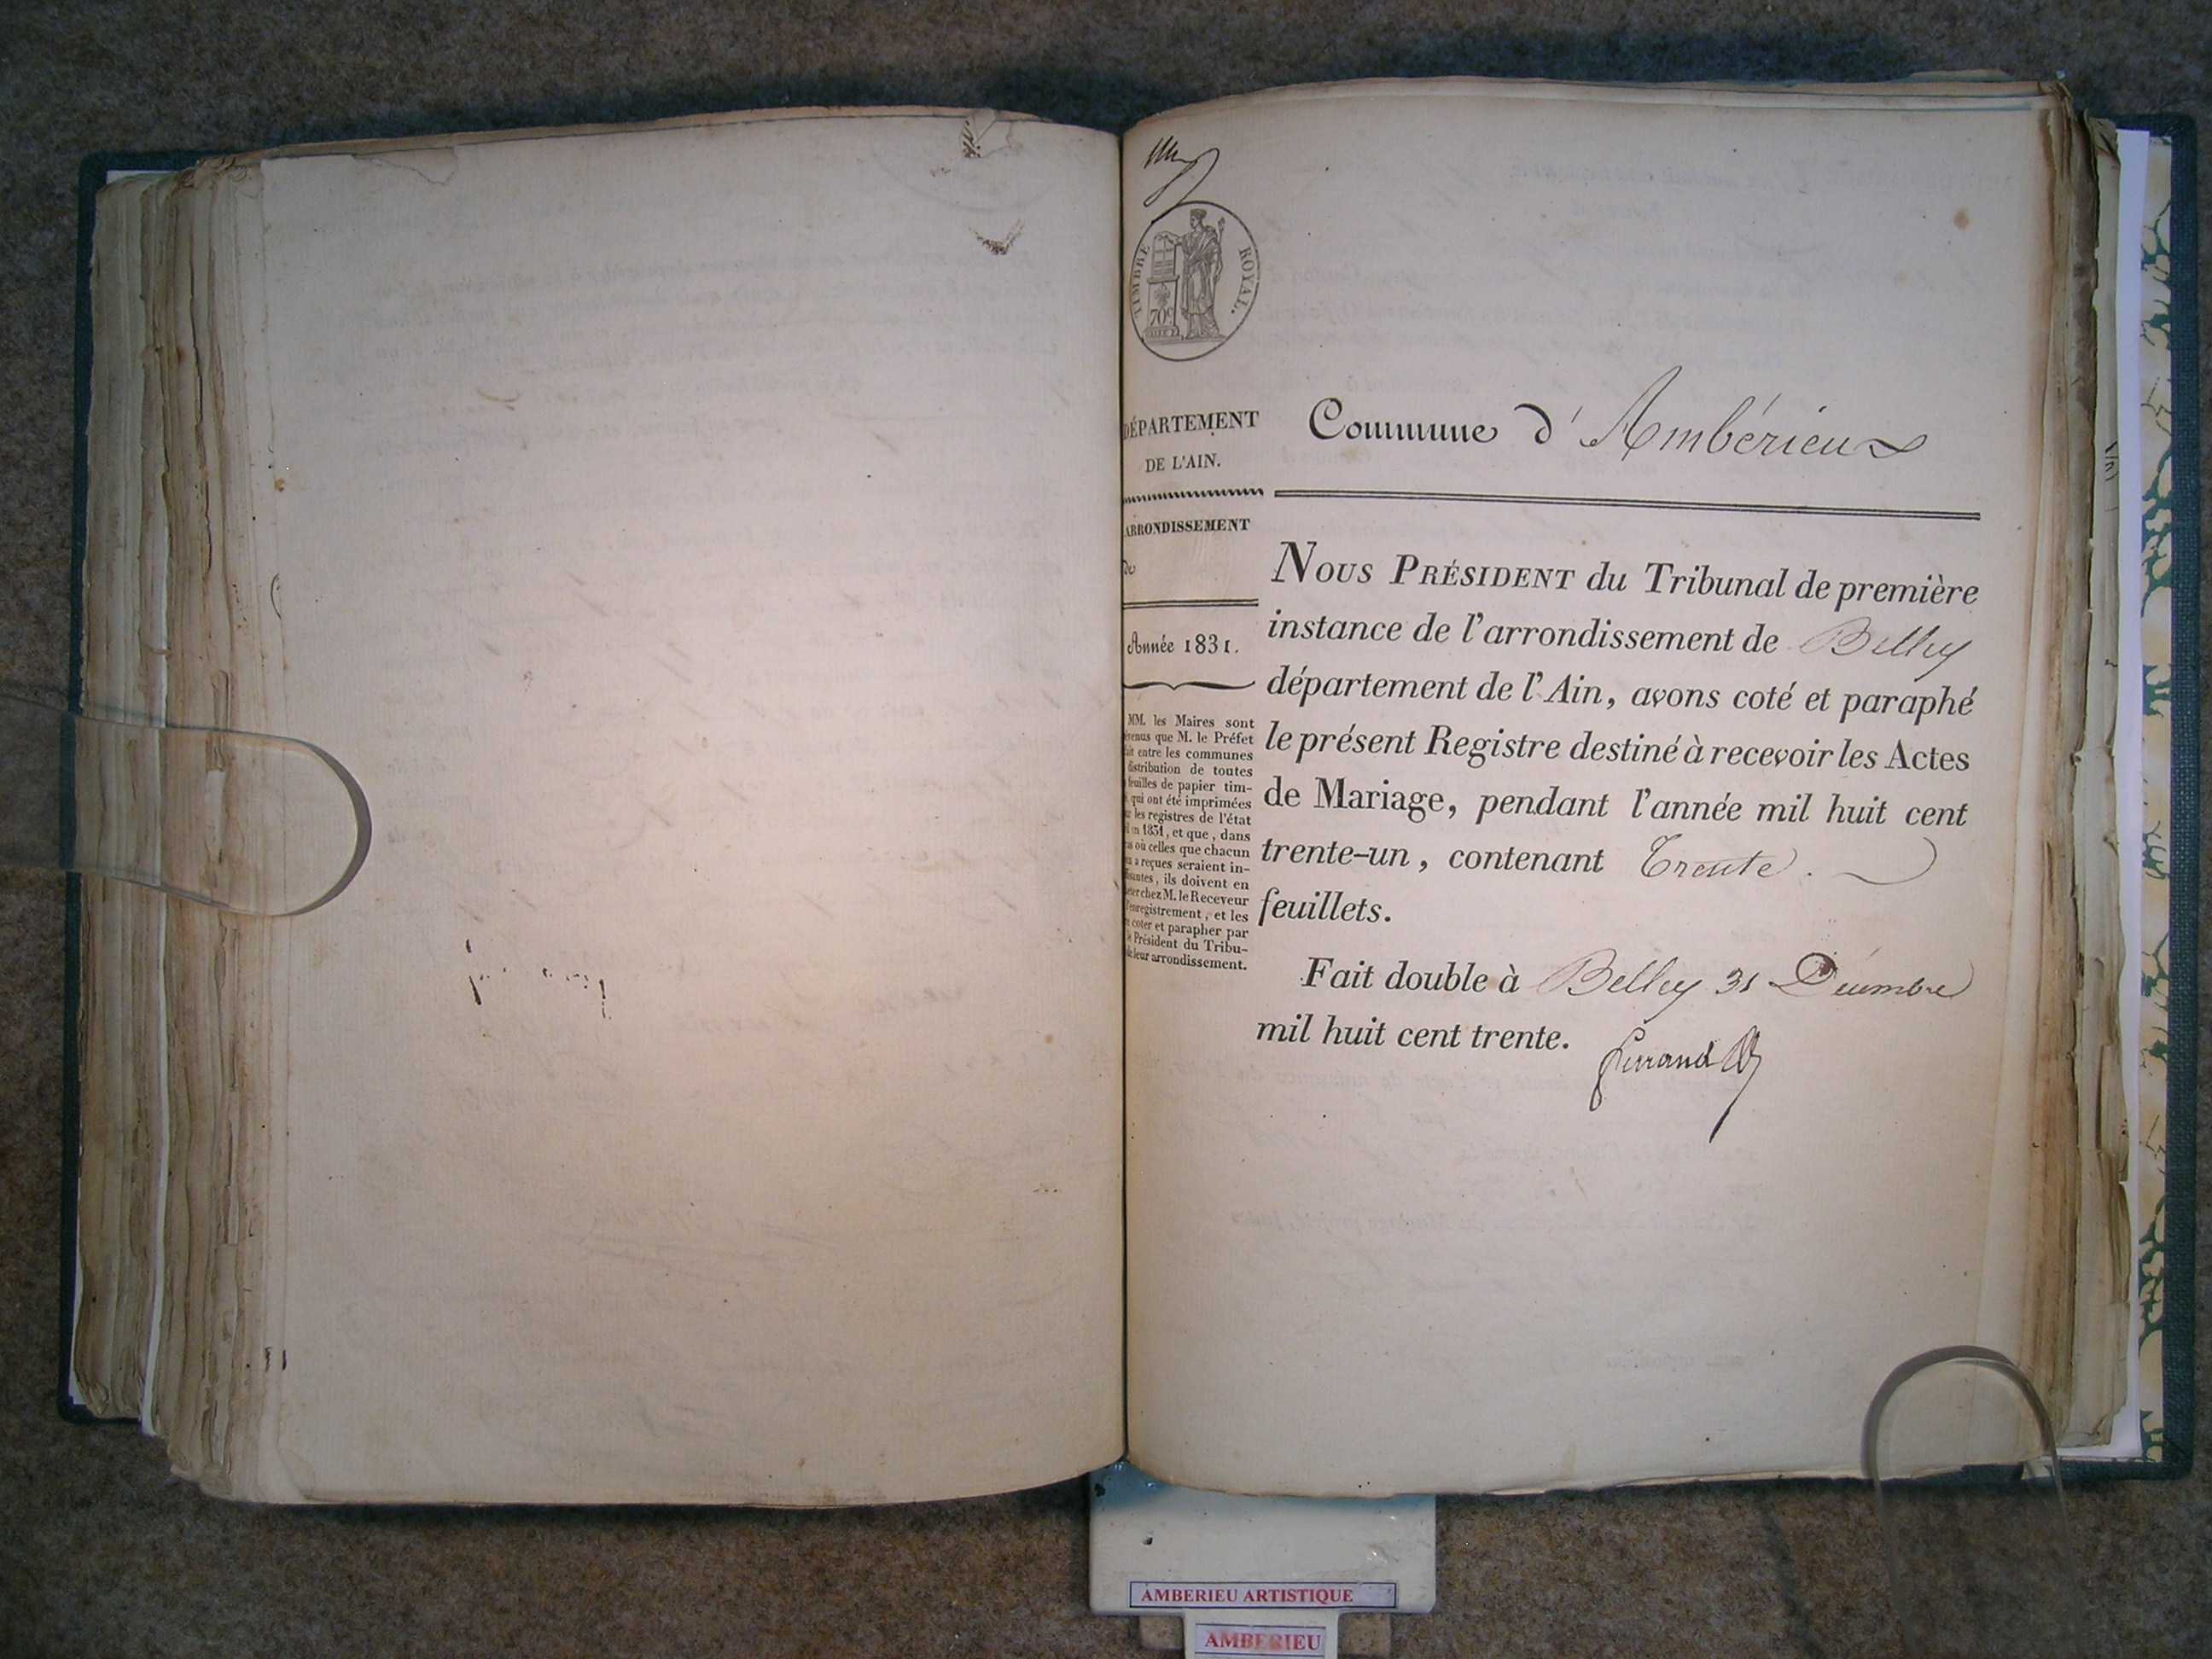 TIMBRE ROYAL.
70c
DÉPARTEMENT
DE L'AIN.
ARRONDISSEMENT
de
Année 1831.
MM. les Maires sont
que M. le Préfet
entre les communes
distribution de toutes
feuilles de papier tim-
qui ont été imprimées
les registres de l'état
en 1831, et que, dans
où celles que chacun
a reçues seraient in-
, ils doivent en
chez M. le Receveur
enregistrement, et les
coter et parapher par
Président du Tribu-
de leur arrondissement.
Commune d'Ambérieux
NOUS PRÉSIDENT du Tribunal de première
instance de l'arrondissement de Belley
département de l'Ain, avons coté et paraphé
le présent Registre destiné à recevoir les Actes
de Mariage, pendant l'année mil huit cent
trente-un, contenant Trente.
feuillets.
Fait double à Belley 31 Décembre
mil huit cent trente.
AMBERIEU ARTISTIQUE
AMBERIEU